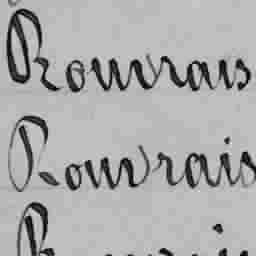 Rouvrais
Rouvrais